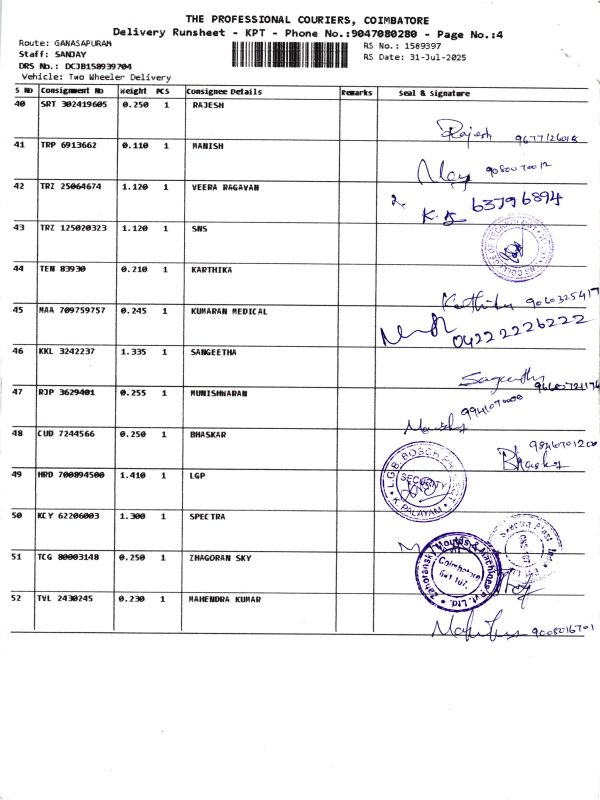 THE PROFESSIONAL COURIERS, COIMBATORE
Delivery Runsheet - KPT - Phone No.:9047080280 - Page No.:4
Route: GANASAPURAM
RS No.: 1589397
Staff: SANJAY
RS Date: 31-Jul-2025
DRS No.: DCJB158939704
Vehicle: Two Wheeler Delivery
S NO Consignment No Weight PCS Consignee Details Remarks Seal & Signature
40 SRT 302419605 0.250 1 RAJESH
Rajesh 9677126018
41 TRP 6913662 0.110 1 MANISH
9080070012
42 TRZ 25064674 1.120 1 VEERA RAGAVAN
63796894
43 TRZ 125020323 1.120 1 SNS
44 TEN 83930 0.210 1 KARTHIKA
Karthika 9060325417
45 MAA 709759757 0.245 1 KUMARAN MEDICAL
04222226222
46 KKL 3242237 1.335 1 SANGEETHA
Sangeetha
47 RJP 3629401 0.255 1 MUNISHWARAN
9941070000
48 CUD 7244566 0.250 1 BHASKAR
Bhaskar
49 HRD 700894500 1.410 1 LGP
SECURITY
K. PALAYAM
50 KCY 62206003 1.300 1 SPECTRA
51 TCG 80003148 0.250 1 ZHAGORAN SKY
Zahoransky Moulds & Machines Pvt. Ltd.
Coimbatore
641 107.
52 TVL 2430245 0.230 1 MAHENDRA KUMAR
9008216701